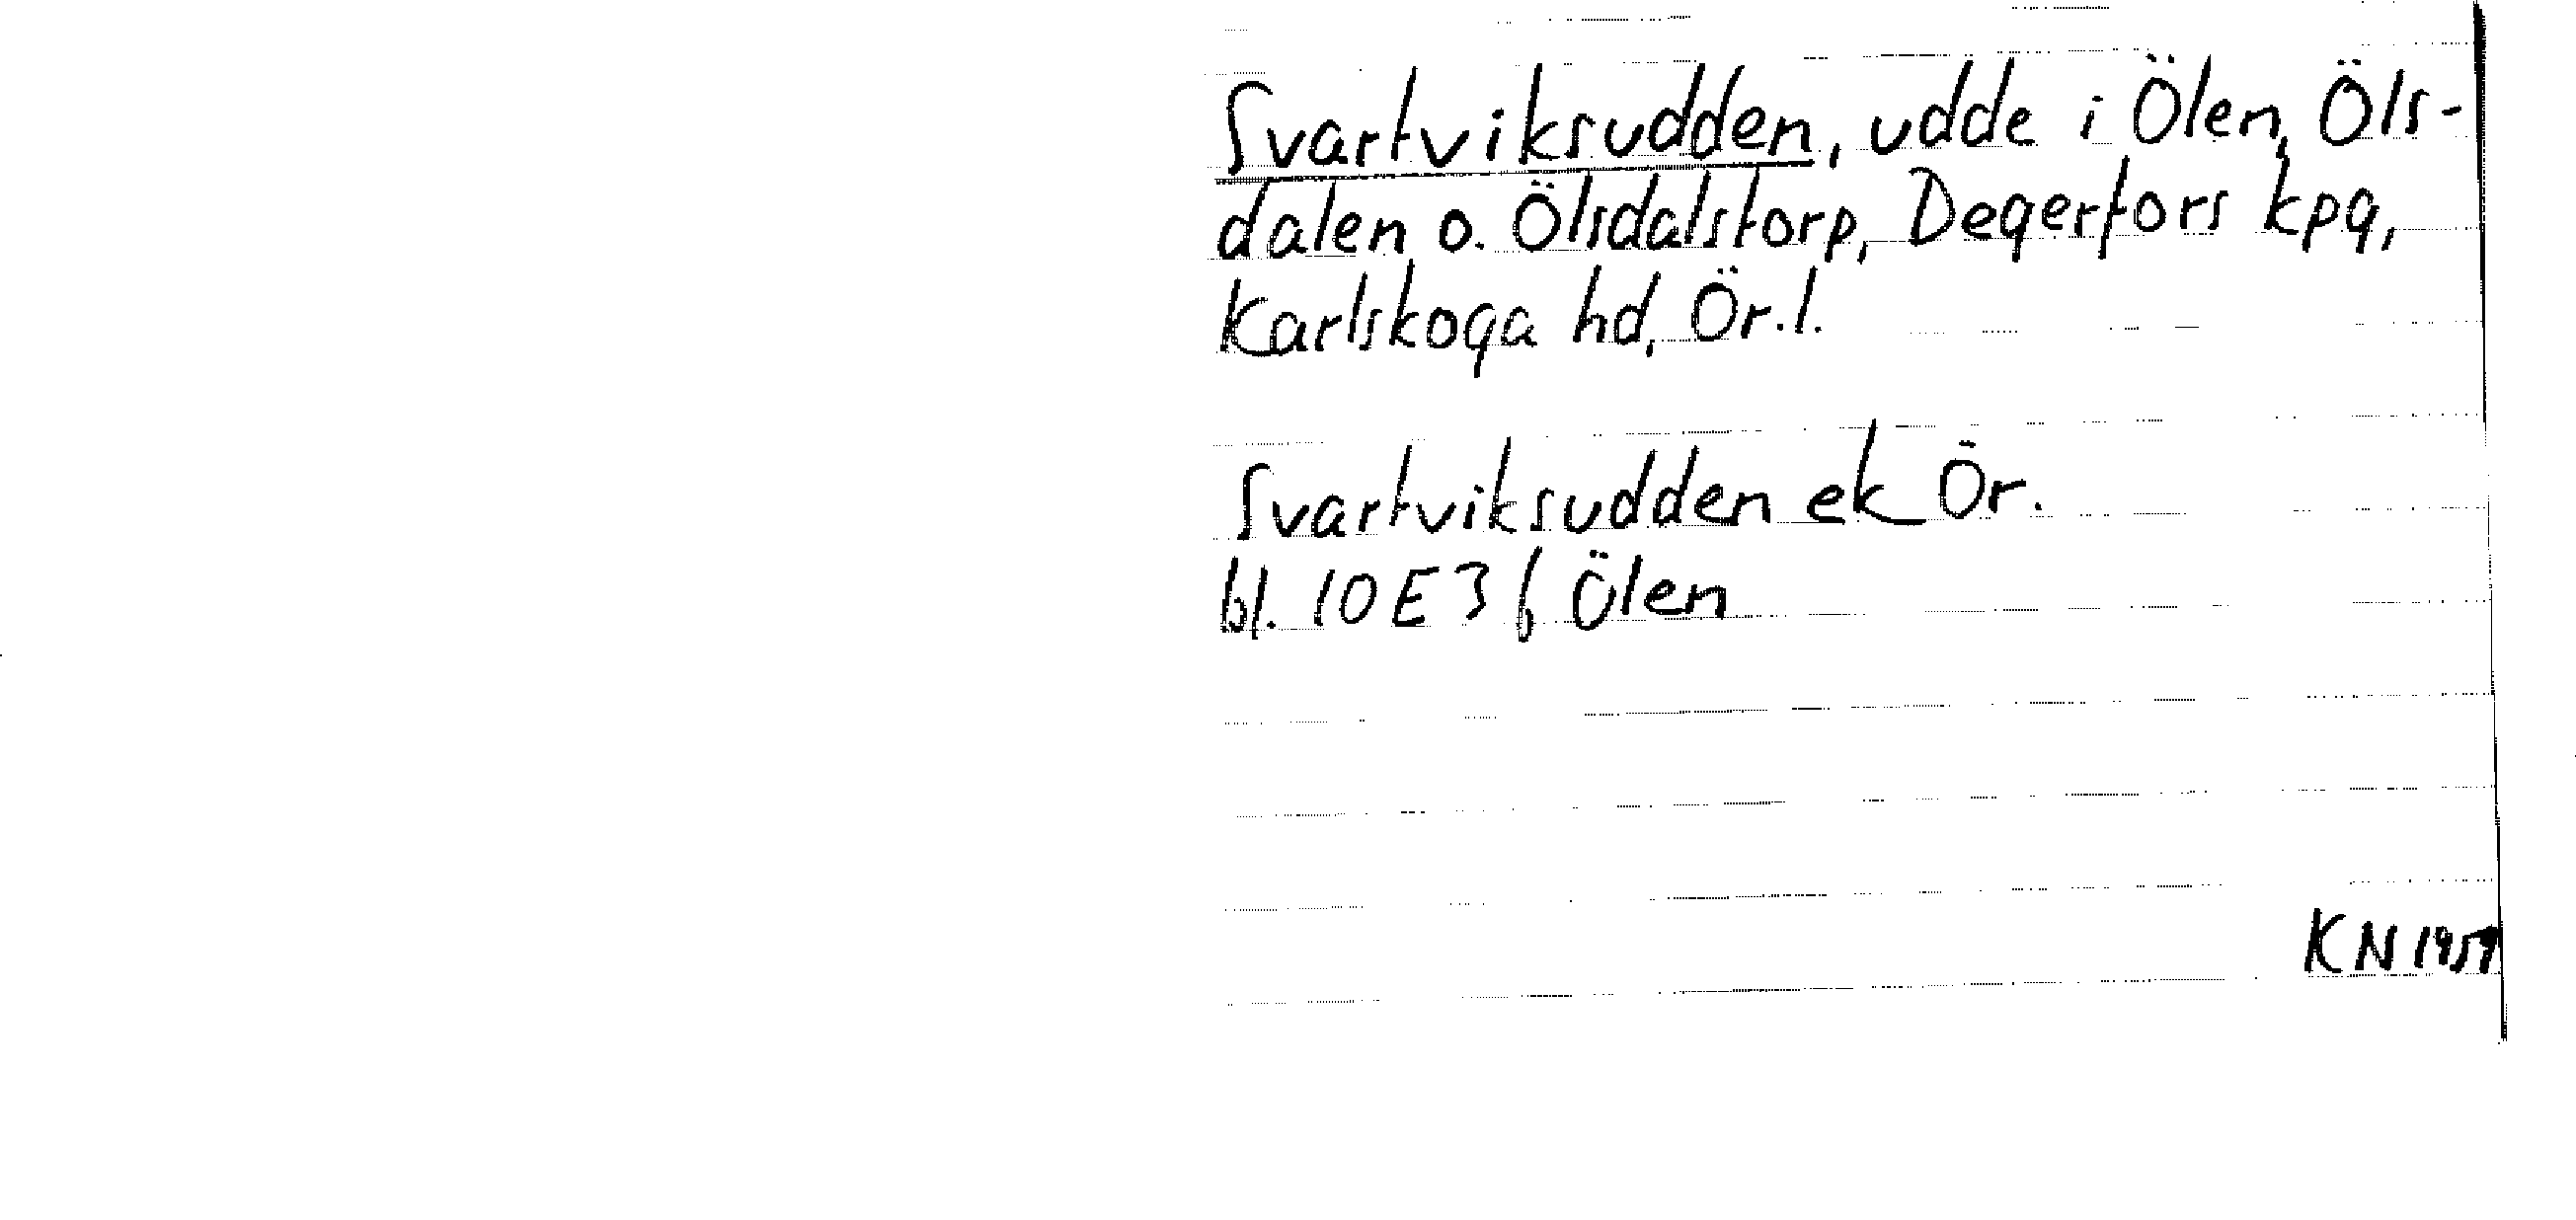 Svartviksudden, udde i Ölen, Öls-
dalen o. Ölsdalstorp, Degerfors kpg,
Karlskoga hd, Ör.l.
Svartviksudden ek Ör.
bl. 10E3f Ölen
KN